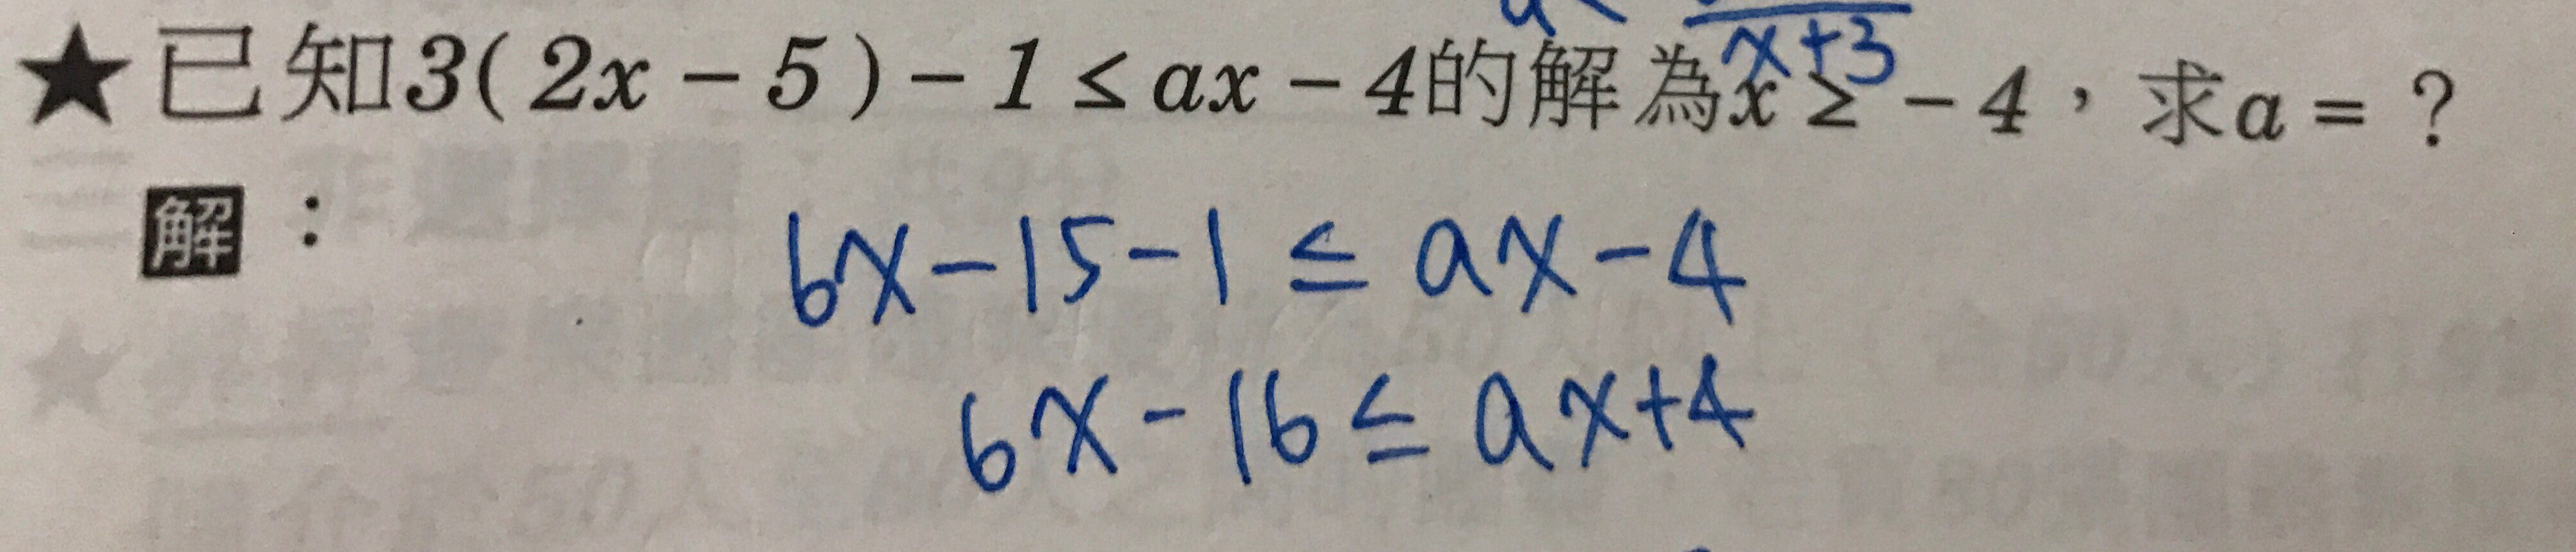 x+3
★已知3(2x-5)-1≤ax-4的解為x≥-4,求a=?
解:
6x-15-1≤ax-4
6x-16≤ax+4